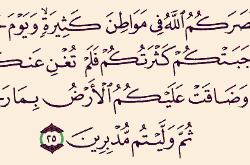 صَرَكُمُ ٱللَّهُ فِى مَوَاطِنَ كَثِيرَةٍ ۙ وَيَوْمَ
جَبَتْكُمْ كَثْرَتُكُمْ فَلَمْ تُغْنِ عَنكُ
وَضَاقَتْ عَلَيْكُمُ ٱلْأَرْضُ بِمَا رَ
ثُمَّ وَلَّيْتُم مُّدْبِرِينَ ٢٥